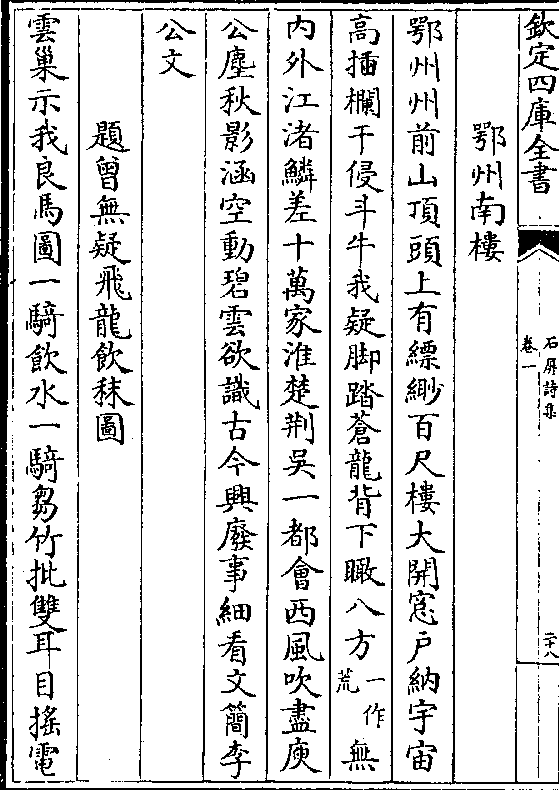 欽定四庫全書
石屏詩集
卷一
二十八
鄂州南樓
鄂州州前山頂頭上有縹緲百尺樓大開窓戶納宇宙
高插欄干侵斗牛我疑脚踏蒼龍背下瞰八方一作荒無
內外江渚鱗差十萬家淮楚荆吳一都會西風吹盡庾
公塵秋影涵空動碧雲欲識古今興廢事細看文簡李
公文
題曾無疑飛龍飲秣圖
雲巢示我良馬圖一騎飲水一騎芻竹批雙耳目搖電